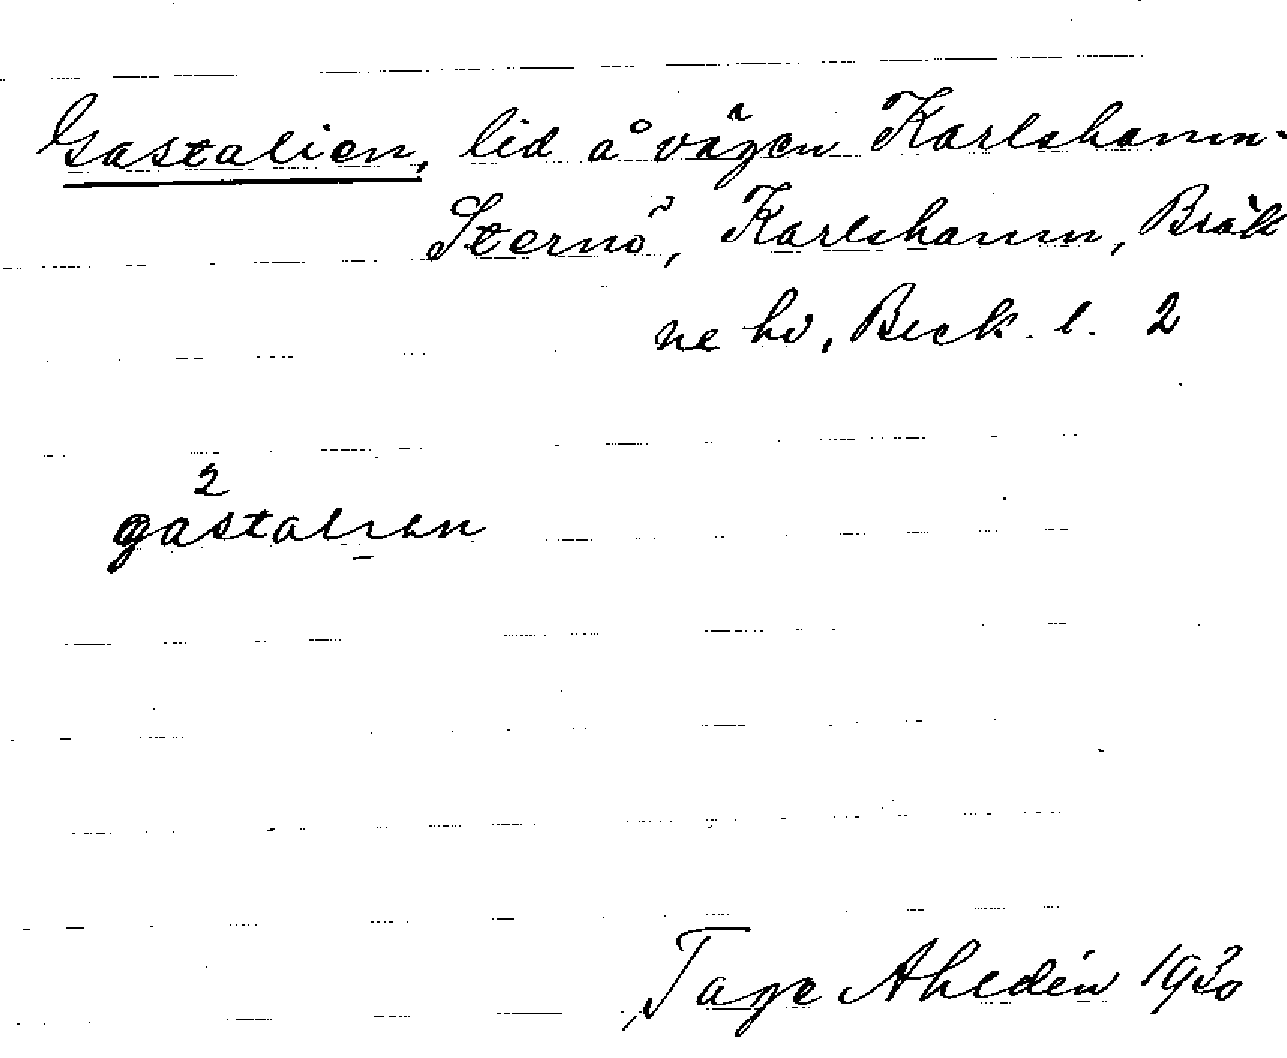 Gastalien, lid å vägen Karlshamn-
Sternö, Karlshamn, Bräk
ne hd, Bleck. l. 2
2
gastalien
Tage Ahldén 1930